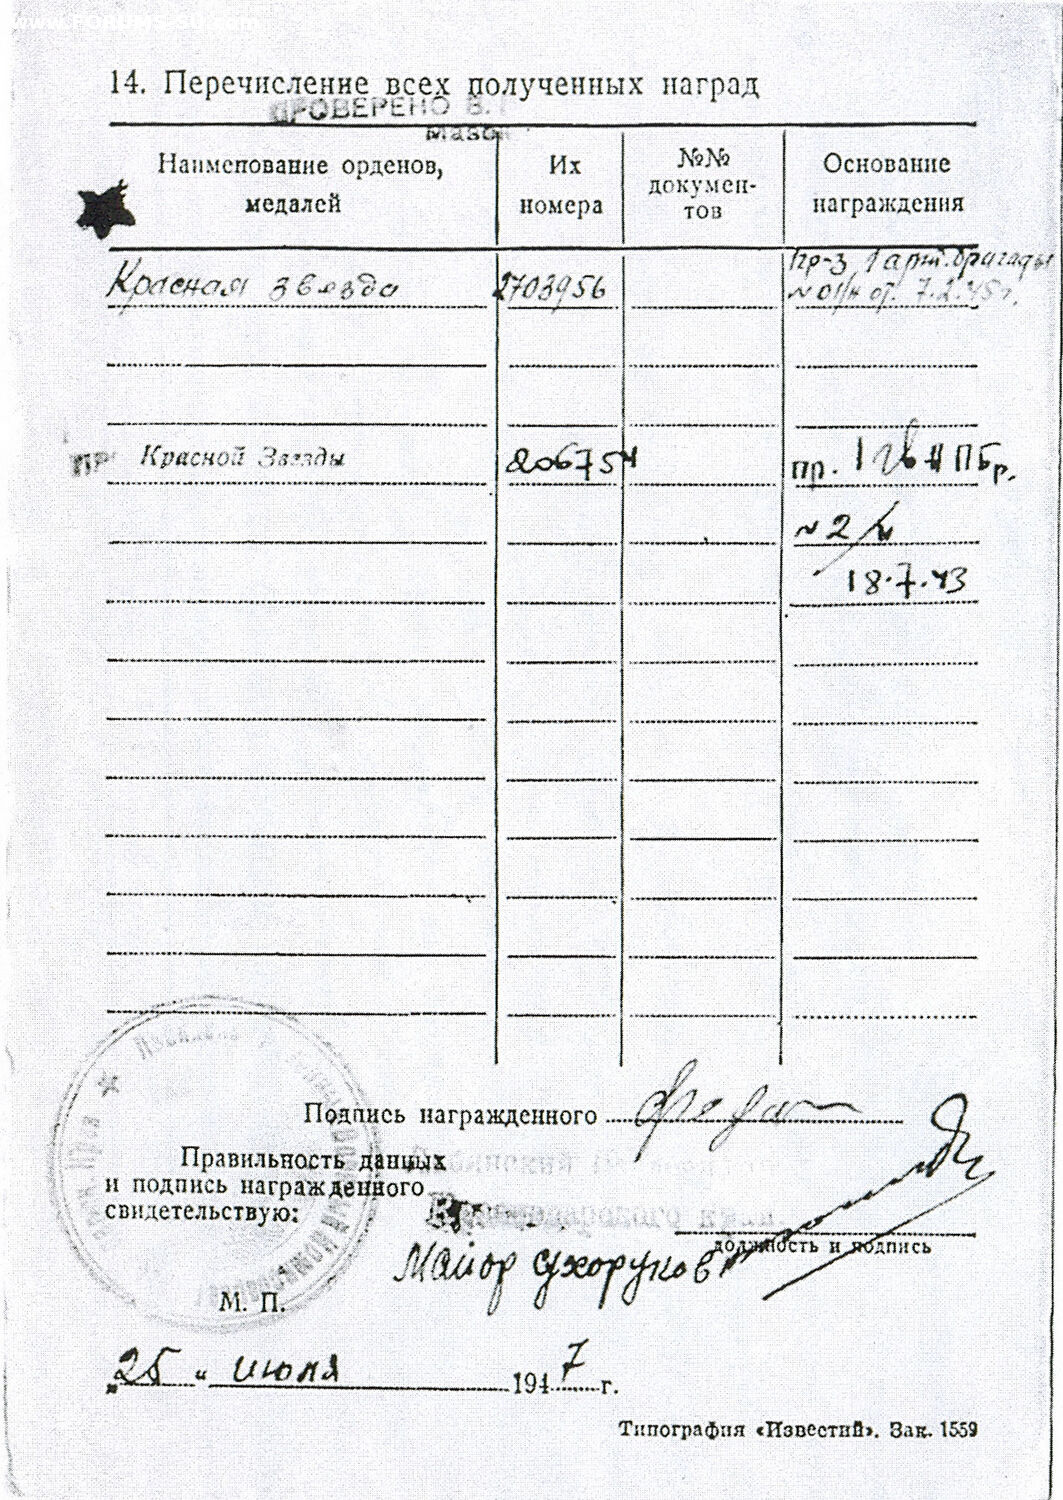 www.FORUMS-SU.com
14. Перечисление всех полученных наград
ПРОВЕРЕНО В.
Наименование орденов, медалей
Их номера
№№ докумен-тов
Основание награждения
Красная звезда 2703956 Пр-з 1 арт. бригады
№ 01/н от. 7.2.45г.
Красной Звезды 206754 пр. 1 гв АПБр.
№ 2/н
18.7.43
Подпись награжденного
Правильность данных
и подпись награжденного
свидетельствую:
должность и подпись
Майор Сухоруков
М. П.
„25 “ июля 1947 г.
Типография «Известий». Зак. 1559